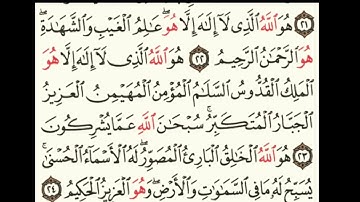 ٢١ هُوَ ٱللَّهُ ٱلَّذِى لَآ إِلَٰهَ إِلَّا هُوَۖ عَٰلِمُ ٱلْغَيْبِ وَٱلشَّهَٰدَةِۖ
هُوَ ٱلرَّحْمَٰنُ ٱلرَّحِيمُ ٢٢ هُوَ ٱللَّهُ ٱلَّذِى لَآ إِلَٰهَ إِلَّا هُوَ
ٱلْمَلِكُ ٱلْقُدُّوسُ ٱلسَّلَٰمُ ٱلْمُؤْمِنُ ٱلْمُهَيْمِنُ ٱلْعَزِيزُ
ٱلْجَبَّارُ ٱلْمُتَكَبِّرُۚ سُبْحَٰنَ ٱللَّهِ عَمَّا يُشْرِكُونَ
٢٣ هُوَ ٱللَّهُ ٱلْخَٰلِقُ ٱلْبَارِئُ ٱلْمُصَوِّرُۖ لَهُ ٱلْأَسْمَآءُ ٱلْحُسْنَىٰۚ
يُسَبِّحُ لَهُۥ مَا فِى ٱلسَّمَٰوَٰتِ وَٱلْأَرْضِۖ وَهُوَ ٱلْعَزِيزُ ٱلْحَكِيمُ ٢٤